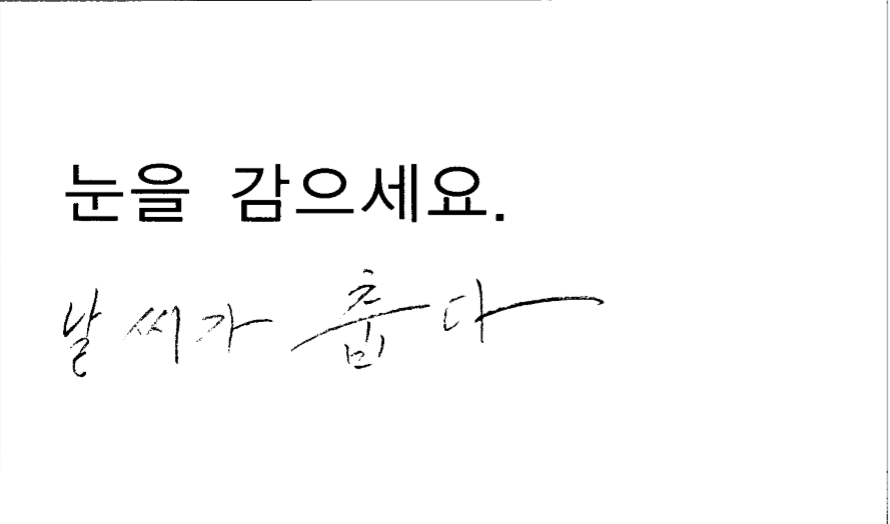 눈을 감으세요.
날씨가 춥다